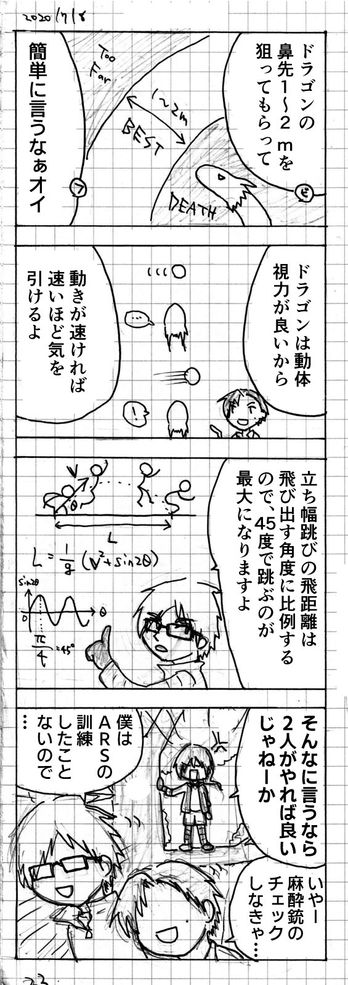 2020/7/8
ドラゴンの
鼻先1〜2mを
狙ってもらって
ヒ
Too
Far
1〜2m
BEST
DEATH
簡単に言うなぁオイ
へ
ドラゴンは動体
視力が良いから
…
!
動きが速ければ
速いほど気を
引けるよ
立ち幅跳びの飛距離は
飛び出す角度に比例する
ので、45度で跳ぶのが
最大になりますよ
V
θ
L
L=1/g(V²+sin2θ)
sin2θ
0
θ
π/4=45°
そんなに言うなら
2人がやれば良い
じゃねーか
僕は
ARSの
訓練
したこと
ないので
…
いやー
麻酔銃の
チェック
しなきゃ…
23